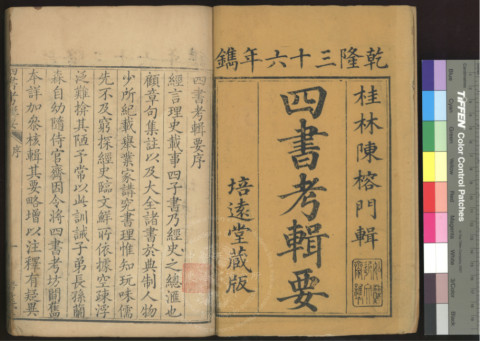 乾隆三十六年鐫
桂林陳榕門輯
四書考輯要
培遠堂藏版
四書考輯要序
經言理史載事四子書乃經史之總滙也
顧章句集註以及大全諸書於典制人物
少所紀載舉業家講究書理惟知玩味儒
先不及窮探經史臨文鮮所依據空疎浮
泛難揜其陋予常以此訓誡子弟長孫蘭
森自幼隨侍官齋因令將四書考坊閒舊
本詳加叅核輯其要略增以注釋有疑異
序
TIFFEN Color Control Patches